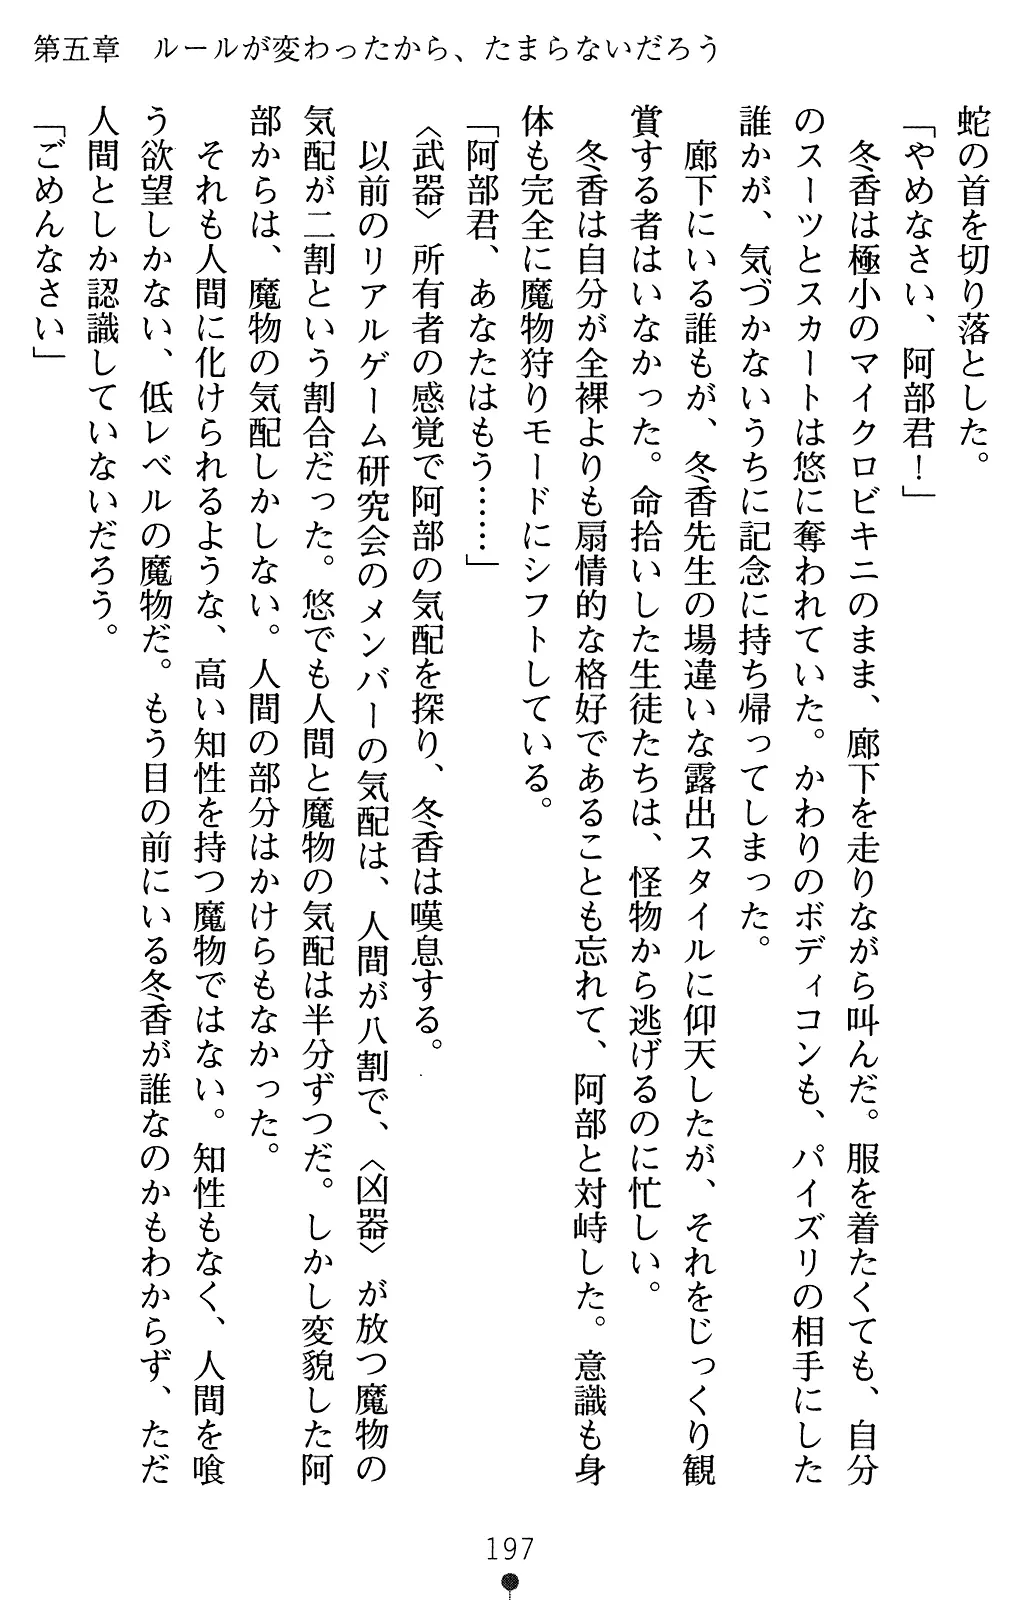 第五章　ルールが変わったから、たまらないだろう
蛇の首を切り落とした。
「やめなさい、阿部君！」
　冬香は極小のマイクロビキニのまま、廊下を走りながら叫んだ。服を着たくても、自分
のスーツとスカートは悠に奪われていた。かわりのボディコンも、パイズリの相手にした
誰かが、気づかないうちに記念に持ち帰ってしまった。
　廊下にいる誰もが、冬香先生の場違いな露出スタイルに仰天したが、それをじっくり観
賞する者はいなかった。命拾いした生徒たちは、怪物から逃げるのに忙しい。
　冬香は自分が全裸よりも扇情的な格好であることも忘れて、阿部と対峙した。意識も身
体も完全に魔物狩りモードにシフトしている。
「阿部君、あなたはもう……」
〈武器〉所有者の感覚で阿部の気配を探り、冬香は嘆息する。
　以前のリアルゲーム研究会のメンバーの気配は、人間が八割で、〈凶器〉が放つ魔物の
気配が二割という割合だった。悠でも人間と魔物の気配は半分ずつだ。しかし変貌した阿
部からは、魔物の気配しかしない。人間の部分はかけらもなかった。
　それも人間に化けられるような、高い知性を持つ魔物ではない。知性もなく、人間を喰
う欲望しかない、低レベルの魔物だ。もう目の前にいる冬香が誰なのかもわからず、ただ
人間としか認識していないだろう。
「ごめんなさい」
197